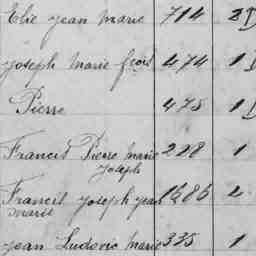 Elie Jean Marie 714 2 D
Joseph Marie fçois 474 1 D
Pierre 478 1 D
Francis Pierre Marie 228 1
Joseph
Francis Joseph Jean 1686 2
Marie
Jean Ludovic Marie 335 1